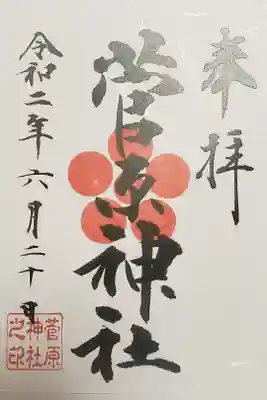 奉拝
菅原神社
令和二年六月二十日
菅原
神社
之印